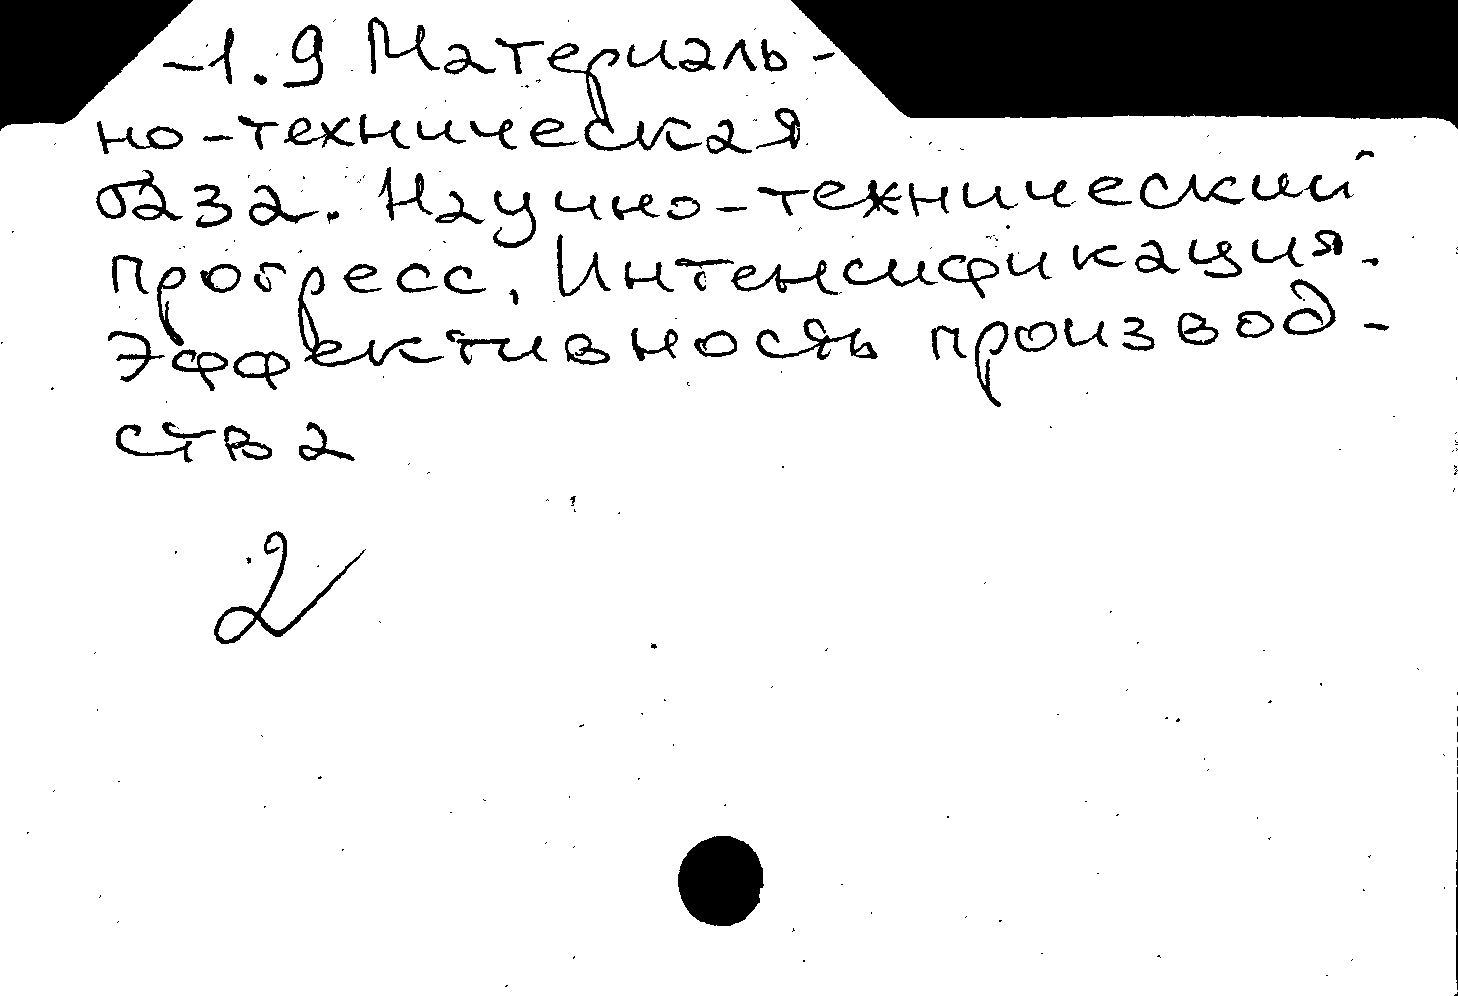 -1.9 Материаль-
но-техническая
база. Научно-технический
прогресс. Интенсификация.
Эффективность производ-
ства
2